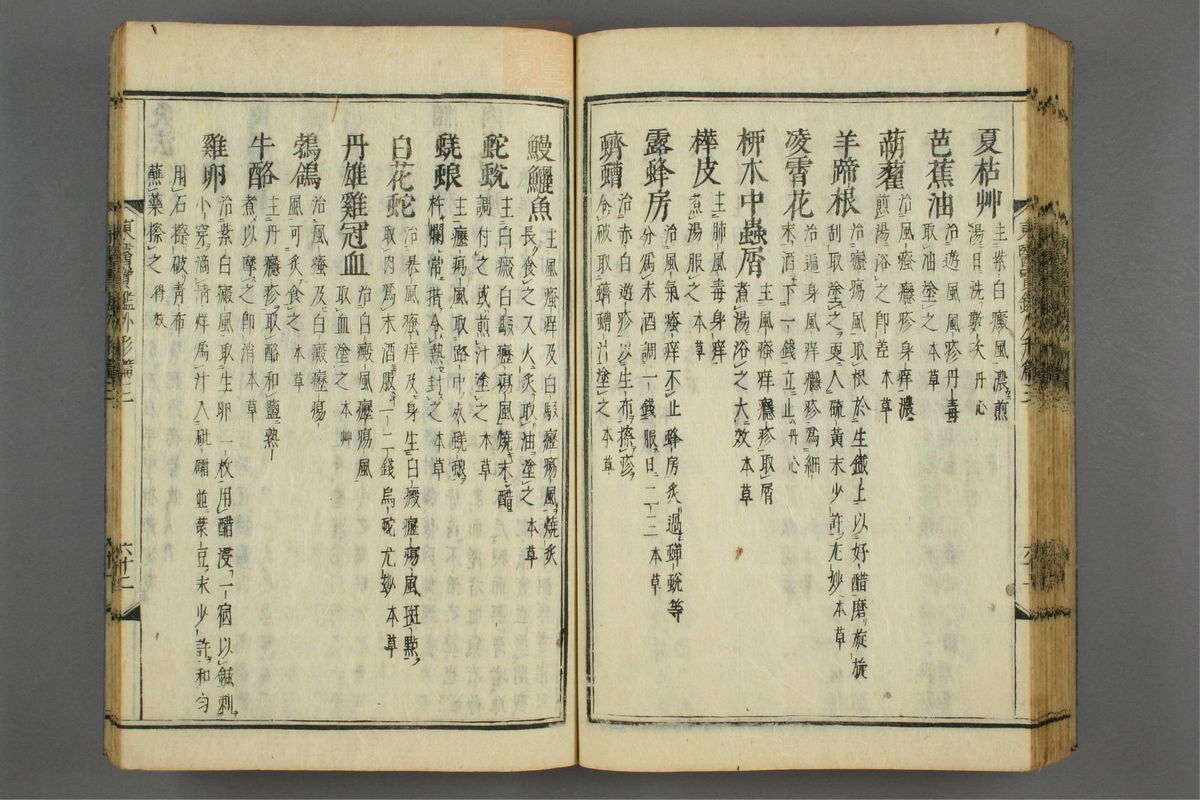 夏枯艸
主紫白癜風濃煎
湯日洗數次丹心
芭蕉油
治遊風疹丹毒
取油塗之本草
蒴藋
治風瘙癮疹身痒濃
煎湯浴之卽差本草
羊蹄根
治癧瘍風取根於生鐵上以好醋磨旋旋
刮取塗之更入硫黃末少許尤妙本草
凌霄花
治遍身風痒癮疹爲細
末酒下一錢立止丹心
柳木中蟲屑
主風瘙痒癮疹取屑
煮湯浴之大效本草
樺皮
主肺風毒身痒
煮湯服之本草
露蜂房
治風氣瘙痒不止蜂房炙過蟬蛻等
分爲末酒調一錢服日二三本草
蠐螬
治赤白遊疹以生布擦疹
令破取蠐螬汁塗之本草
鰻鱺魚
主風瘙痒及白駁癧瘍風燒炙
長食之又火炙取油塗之本草
蛇蛻
主白癜白駁癧瘍風燒末醋
調付之或煎汁塗之本草
蜣蜋
主癧瘍風取路中死蜣蜋
杵爛常揩令熱封之本草
白花蛇
治暴風瘙痒及身生白癜癧瘍風斑點
取肉爲末酒服一二錢烏蛇尤妙本草
丹雄雞冠血
治白癜風癧瘍風
取血塗之本艸
鵓鴿
治風瘙及白癜癧瘍
風可炙食之本草
牛酪
主丹癮疹取酪和鹽熱
煮以摩之卽消本草
雞卵
治紫白癜風取生卵一枚用醋浸一宿以鍼刺
小穴滴淸烊爲汁入砒礵並菉豆末少許和勻
用石擦破靑布
蘸藥擦之得效
東醫寶鑑外形篇三
六十二